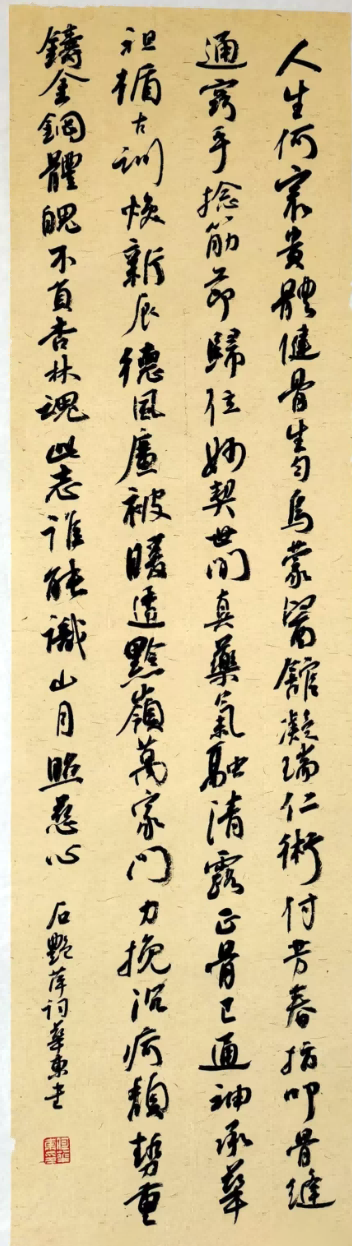 人生何冣貴體健骨生勻烏蒙醫館凝瑞仁術付芳春指叩骨縫
通竅手捻筋節歸位妙契世間真藥氣融清露正骨已通神承華
祖循古訓煥新辰德風廣被暖透黔嶺萬家門力挽沉疴頹勢重
鑄金鋼體魄不負杏林魂此志誰能識山月照慈心
石艷萍詞華東書